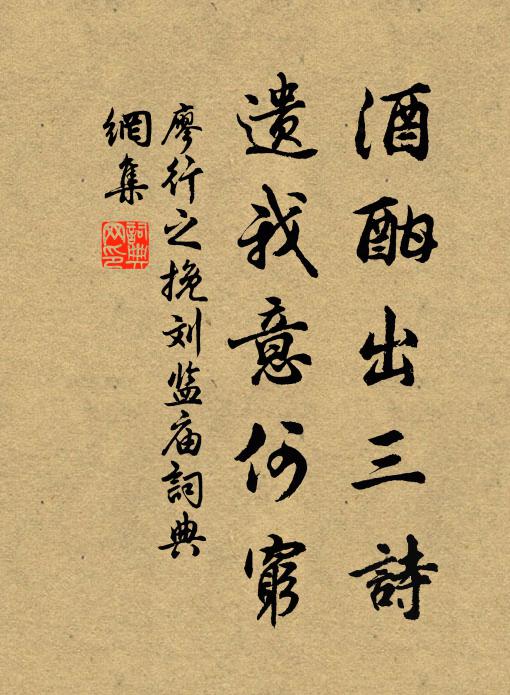 酒酣出三詩
遺我意何窮
廖行之挽刘监庙詞典
網集
詞典網印